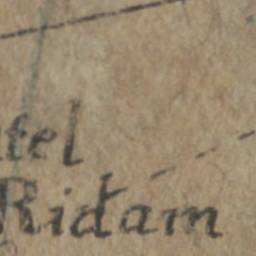 tel
Ridam